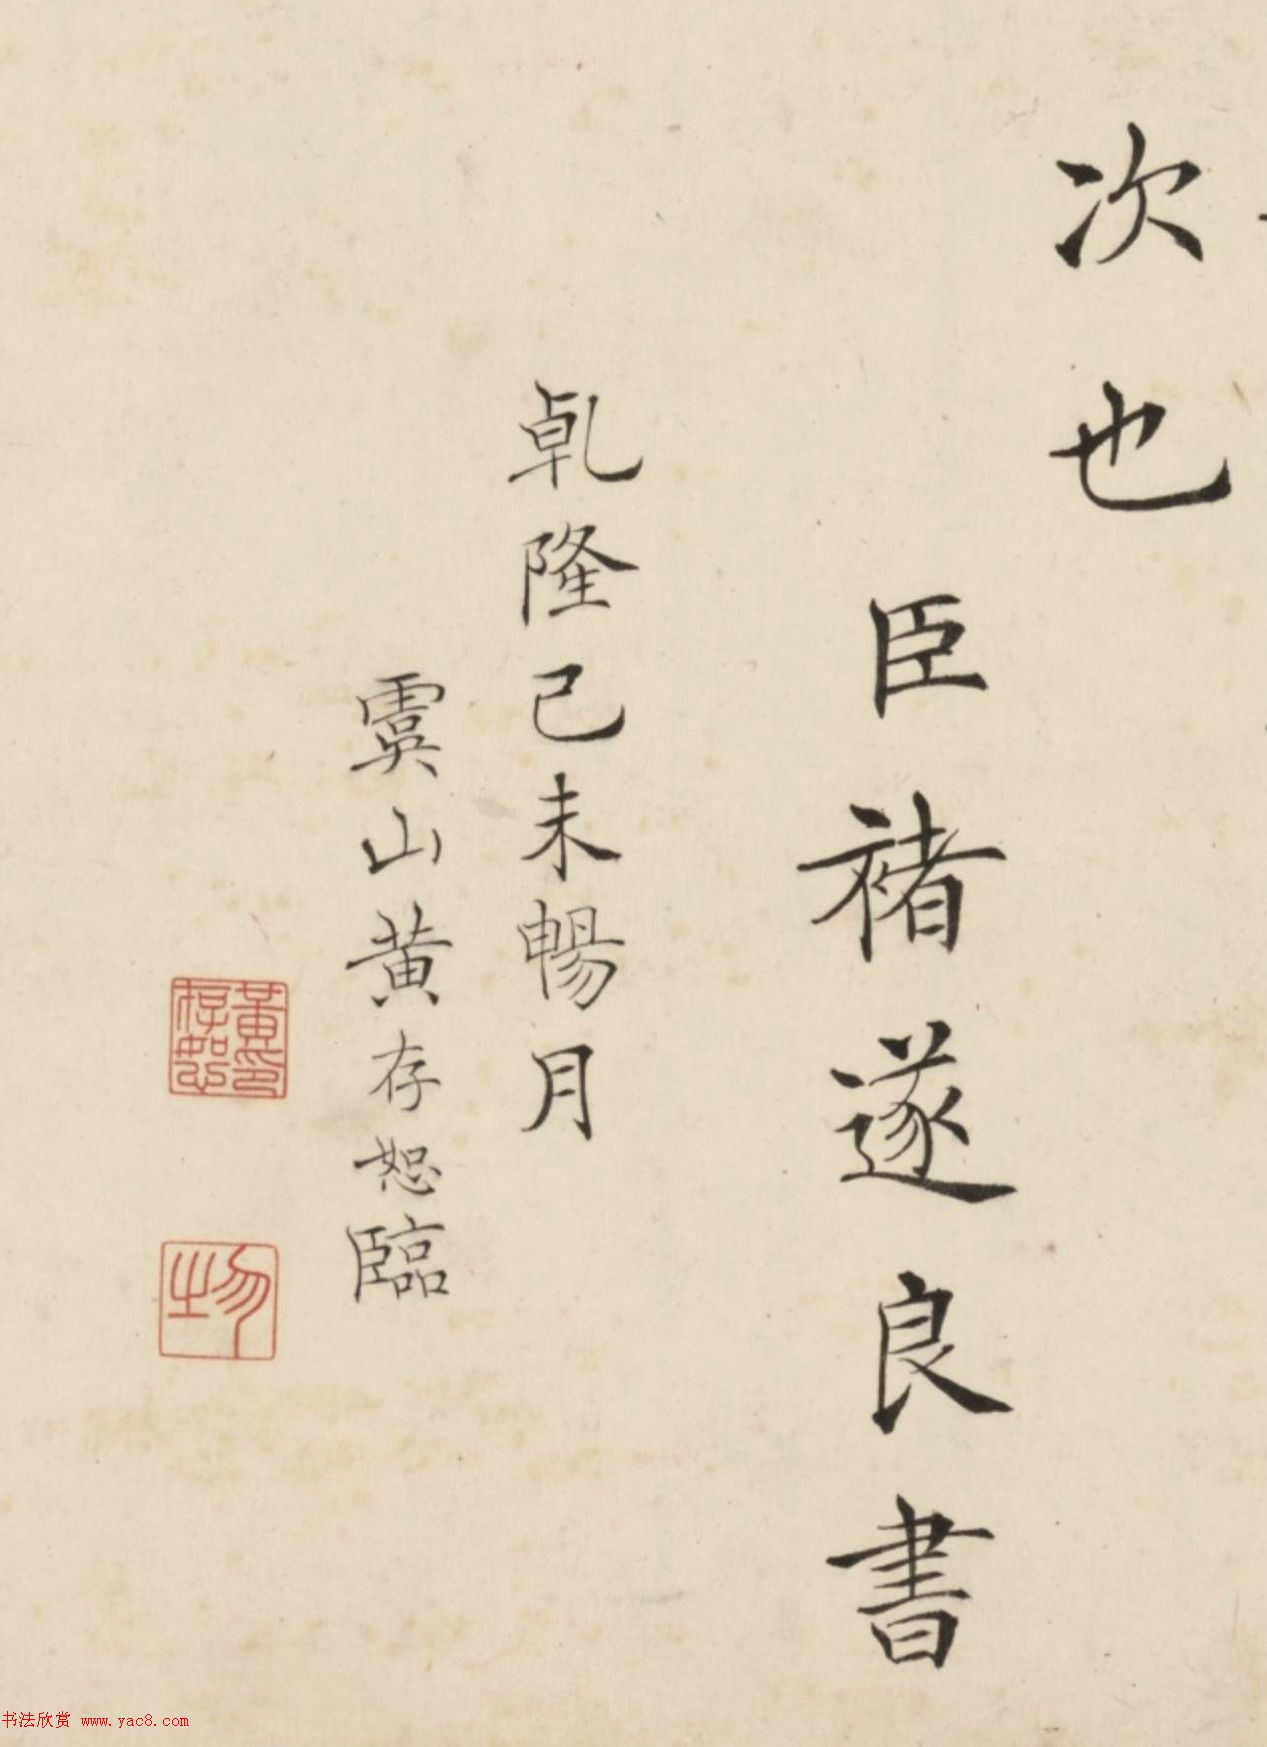 次也
臣褚遂良書
乹隆己未暢月
虞山黄存恕臨
黃存恕印
书法欣赏 www.yac8.com